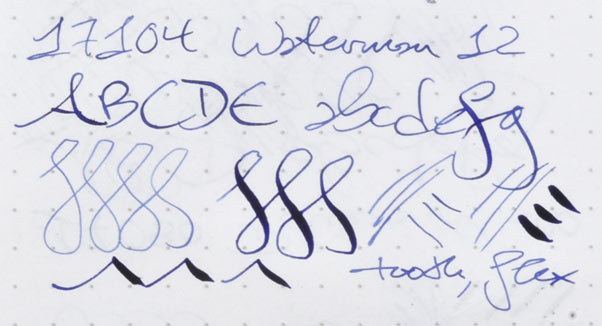 17104 Waterman 12
ABCDE abcdefg
tooth, flex